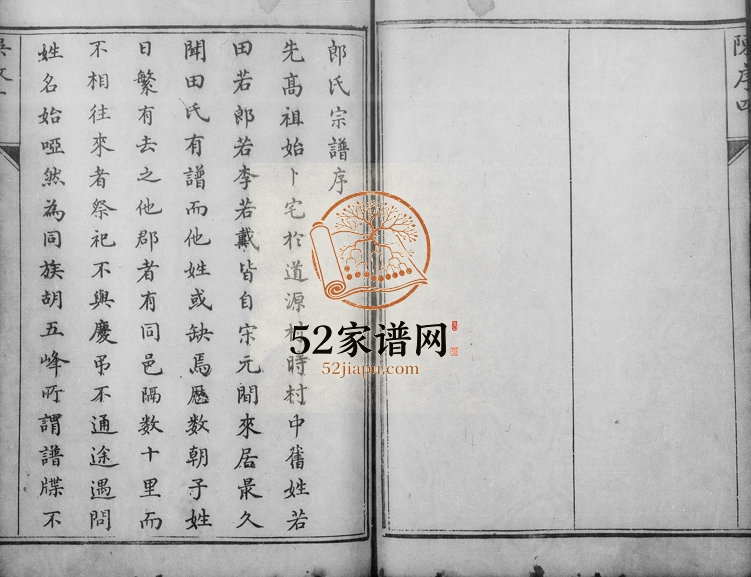 陳序
郎氏宗譜序
先高祖始卜宅於道源村時村中舊姓若
田若郎若李若戴皆自宋元間來居最久
聞田氏有譜而他姓或缺焉歷数朝子姓
日繁有去之他郡者有同邑隔数十里而
不相往來者祭祀不與慶吊不通途遇問
姓名始啞然為同族胡五峰所謂譜牒不
52家谱网
52jiapu.com